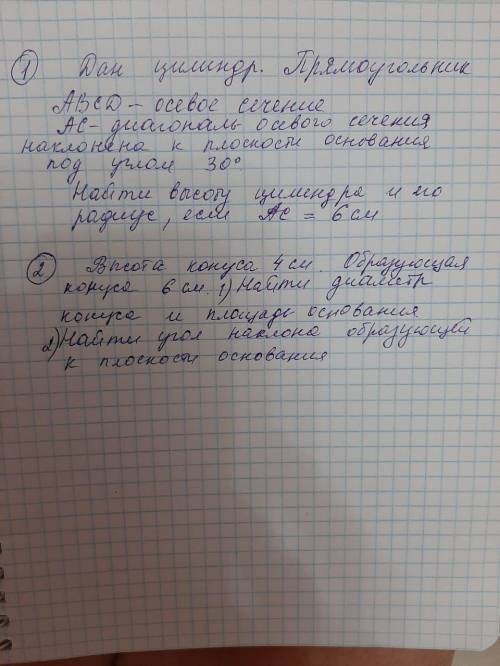 ① Дан цилиндр. Прямоугольник
ABCD – осевое сечение
AC – диагональ осевого сечения
наклонена к плоскости основания
под углом 30°
Найти высоту цилиндра и его
радиус, если AC = 6 см
② Высота конуса 4 см. Образующая
конуса 6 см. 1) Найти диаметр
конуса и площадь основания
2) Найти угол наклона образующей
к плоскости основания